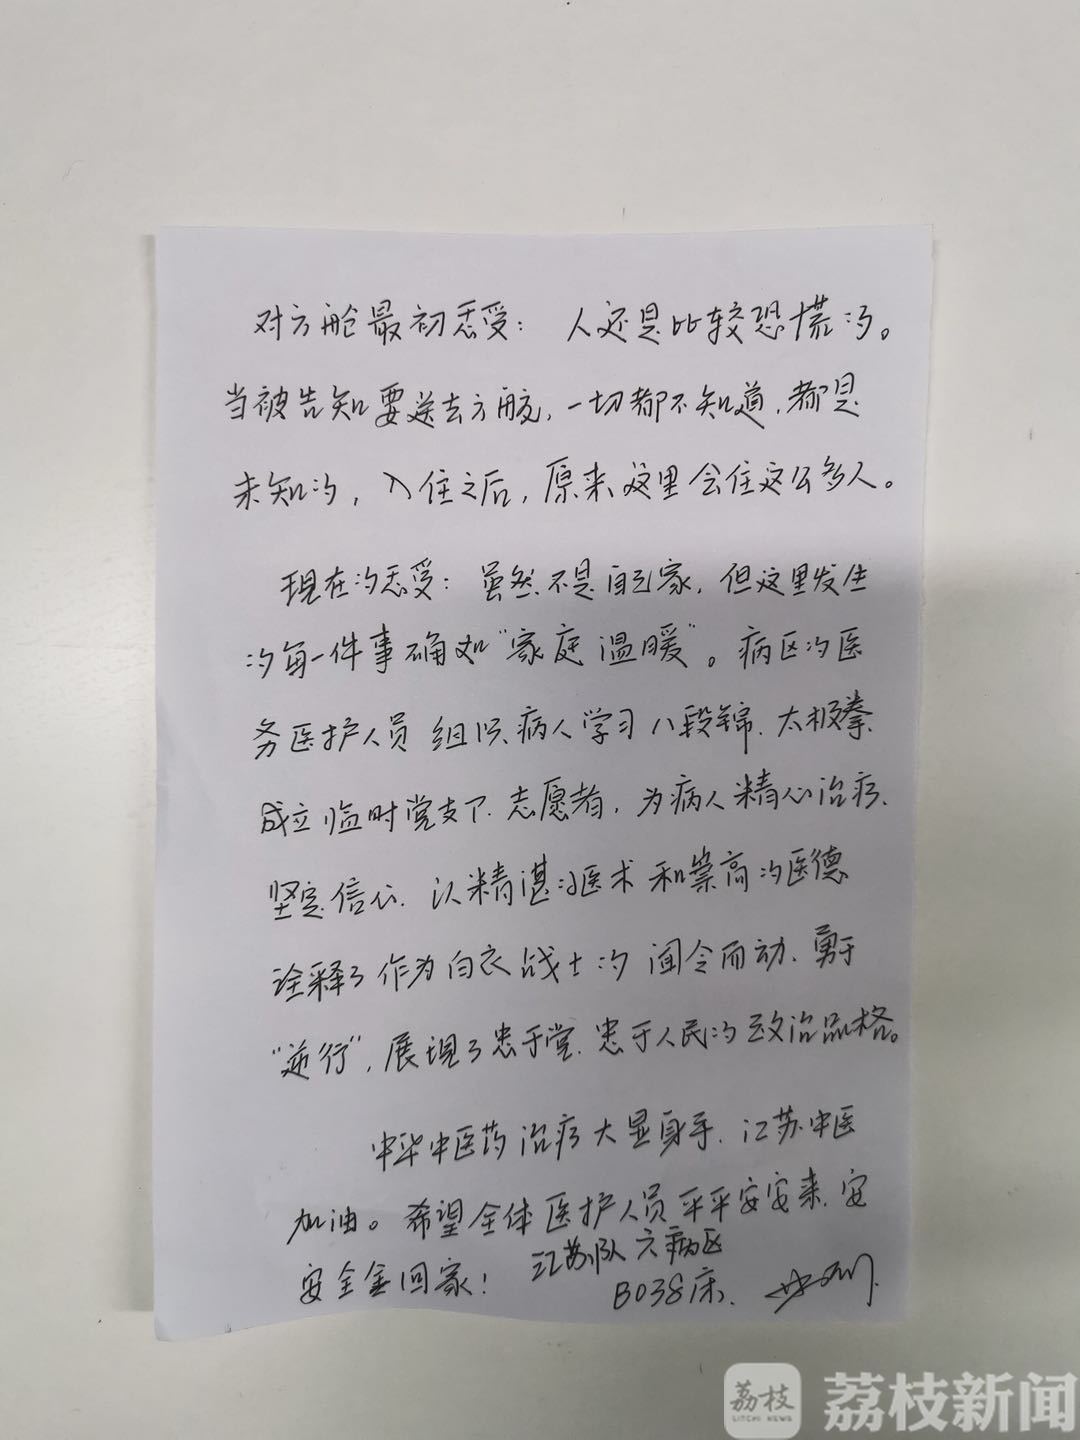 对方舱最初感受：人还是比较恐慌的。
当被告知要送去方舱，一切都不知道，都是
未知的，入住之后，原来这里会住这么多人。
现在的感受：虽然不是自己家，但这里发生
的每一件事确如“家庭温暖”。病区的医
务医护人员组织病人学习八段锦、太极拳
成立临时党支下、志愿者，为病人精心治疗、
坚定信心、以精湛的医术和崇高的医德
诠释了作为白衣战士的闻令而动、勇于
“逆行”，展现了忠于党、忠于人民的政治品格。
中华中医药治疗大显身手、江苏中医
加油。希望全体医护人员平平安安来、安
安全全回家！
江苏队六病区
B038床、
荔枝
LITCHI NEWS
荔枝新闻